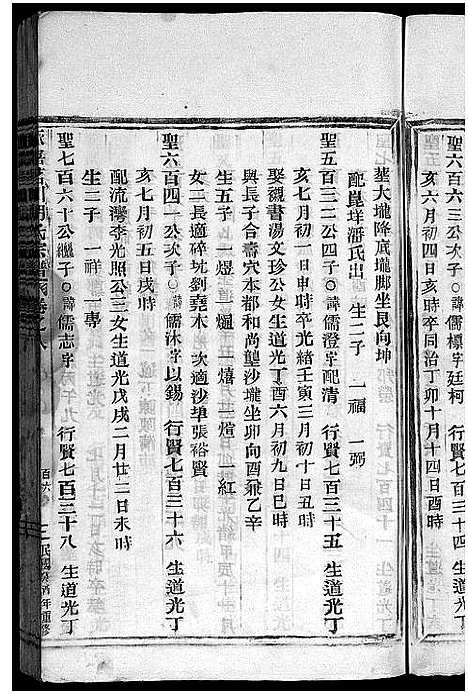 聖六百六三公次子○諱儒標字廷柯
亥六月初四日亥時卒同治丁卯十月十四日酉時
塟大壠降底壠脚坐艮向坤
配崑垟潘氏出 生二子 一福 一弼
聖五百三二公四子○諱儒澄字配清 行賢七百三十五 生道光丁
亥七月初一日申時卒光緒壬寅三月初十日丑時
娶觀書湯文珍公女生道光丁酉六月初九日巳時
與長子合壽穴本都和尚壟沙壠坐卯向酉兼乙辛
生五子 一煜 一煾 一熺 一煊 一紅
女二長適碎坑劉堯木 次適沙埠張裕賢
聖六百四一公次子○諱儒沐字以錫 行賢七百三十六 生道光丁
亥七月初五日戌時
配流灣李光照公三女生道光戊戌二月廿三日未時
生二子 一祥 一專
聖七百六十公繼子○諱儒志字 行賢七百三十八 生道光丁
百六
民國癸酉年重修